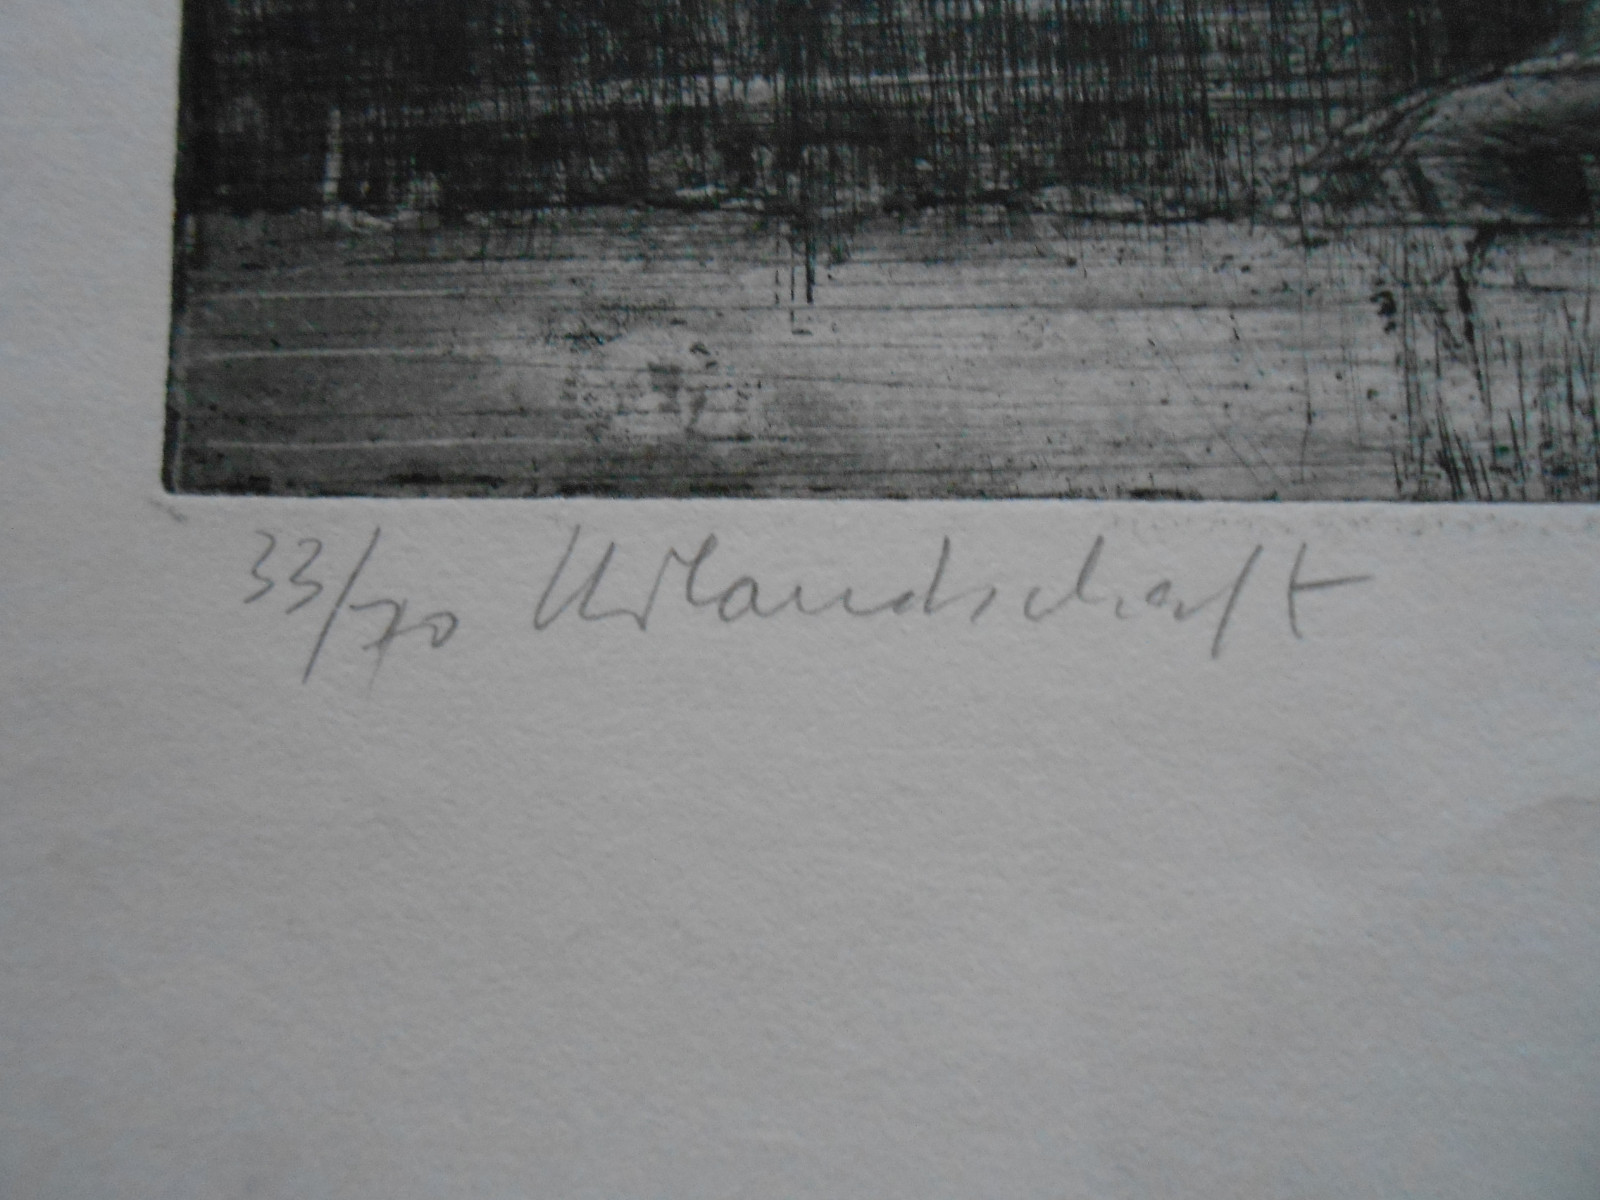 33/70 Urlandschaft